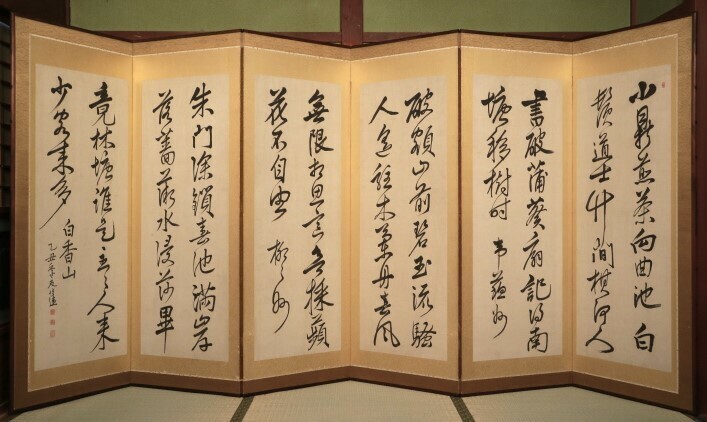 小鼎煎茶面曲池白
鬚道士竹間棋何人
書破蒲葵扇記南
塘移樹時 韋蘇州
破額山前碧玉流騷
人遙駐木蘭舟春風
無限相思意欲採蘋
花不自由 柳柳州
朱門深鎖春池滿岸
落薔薇水浸莎畢
竟林塘誰是主主人來
少客來多
白香山
乙丑